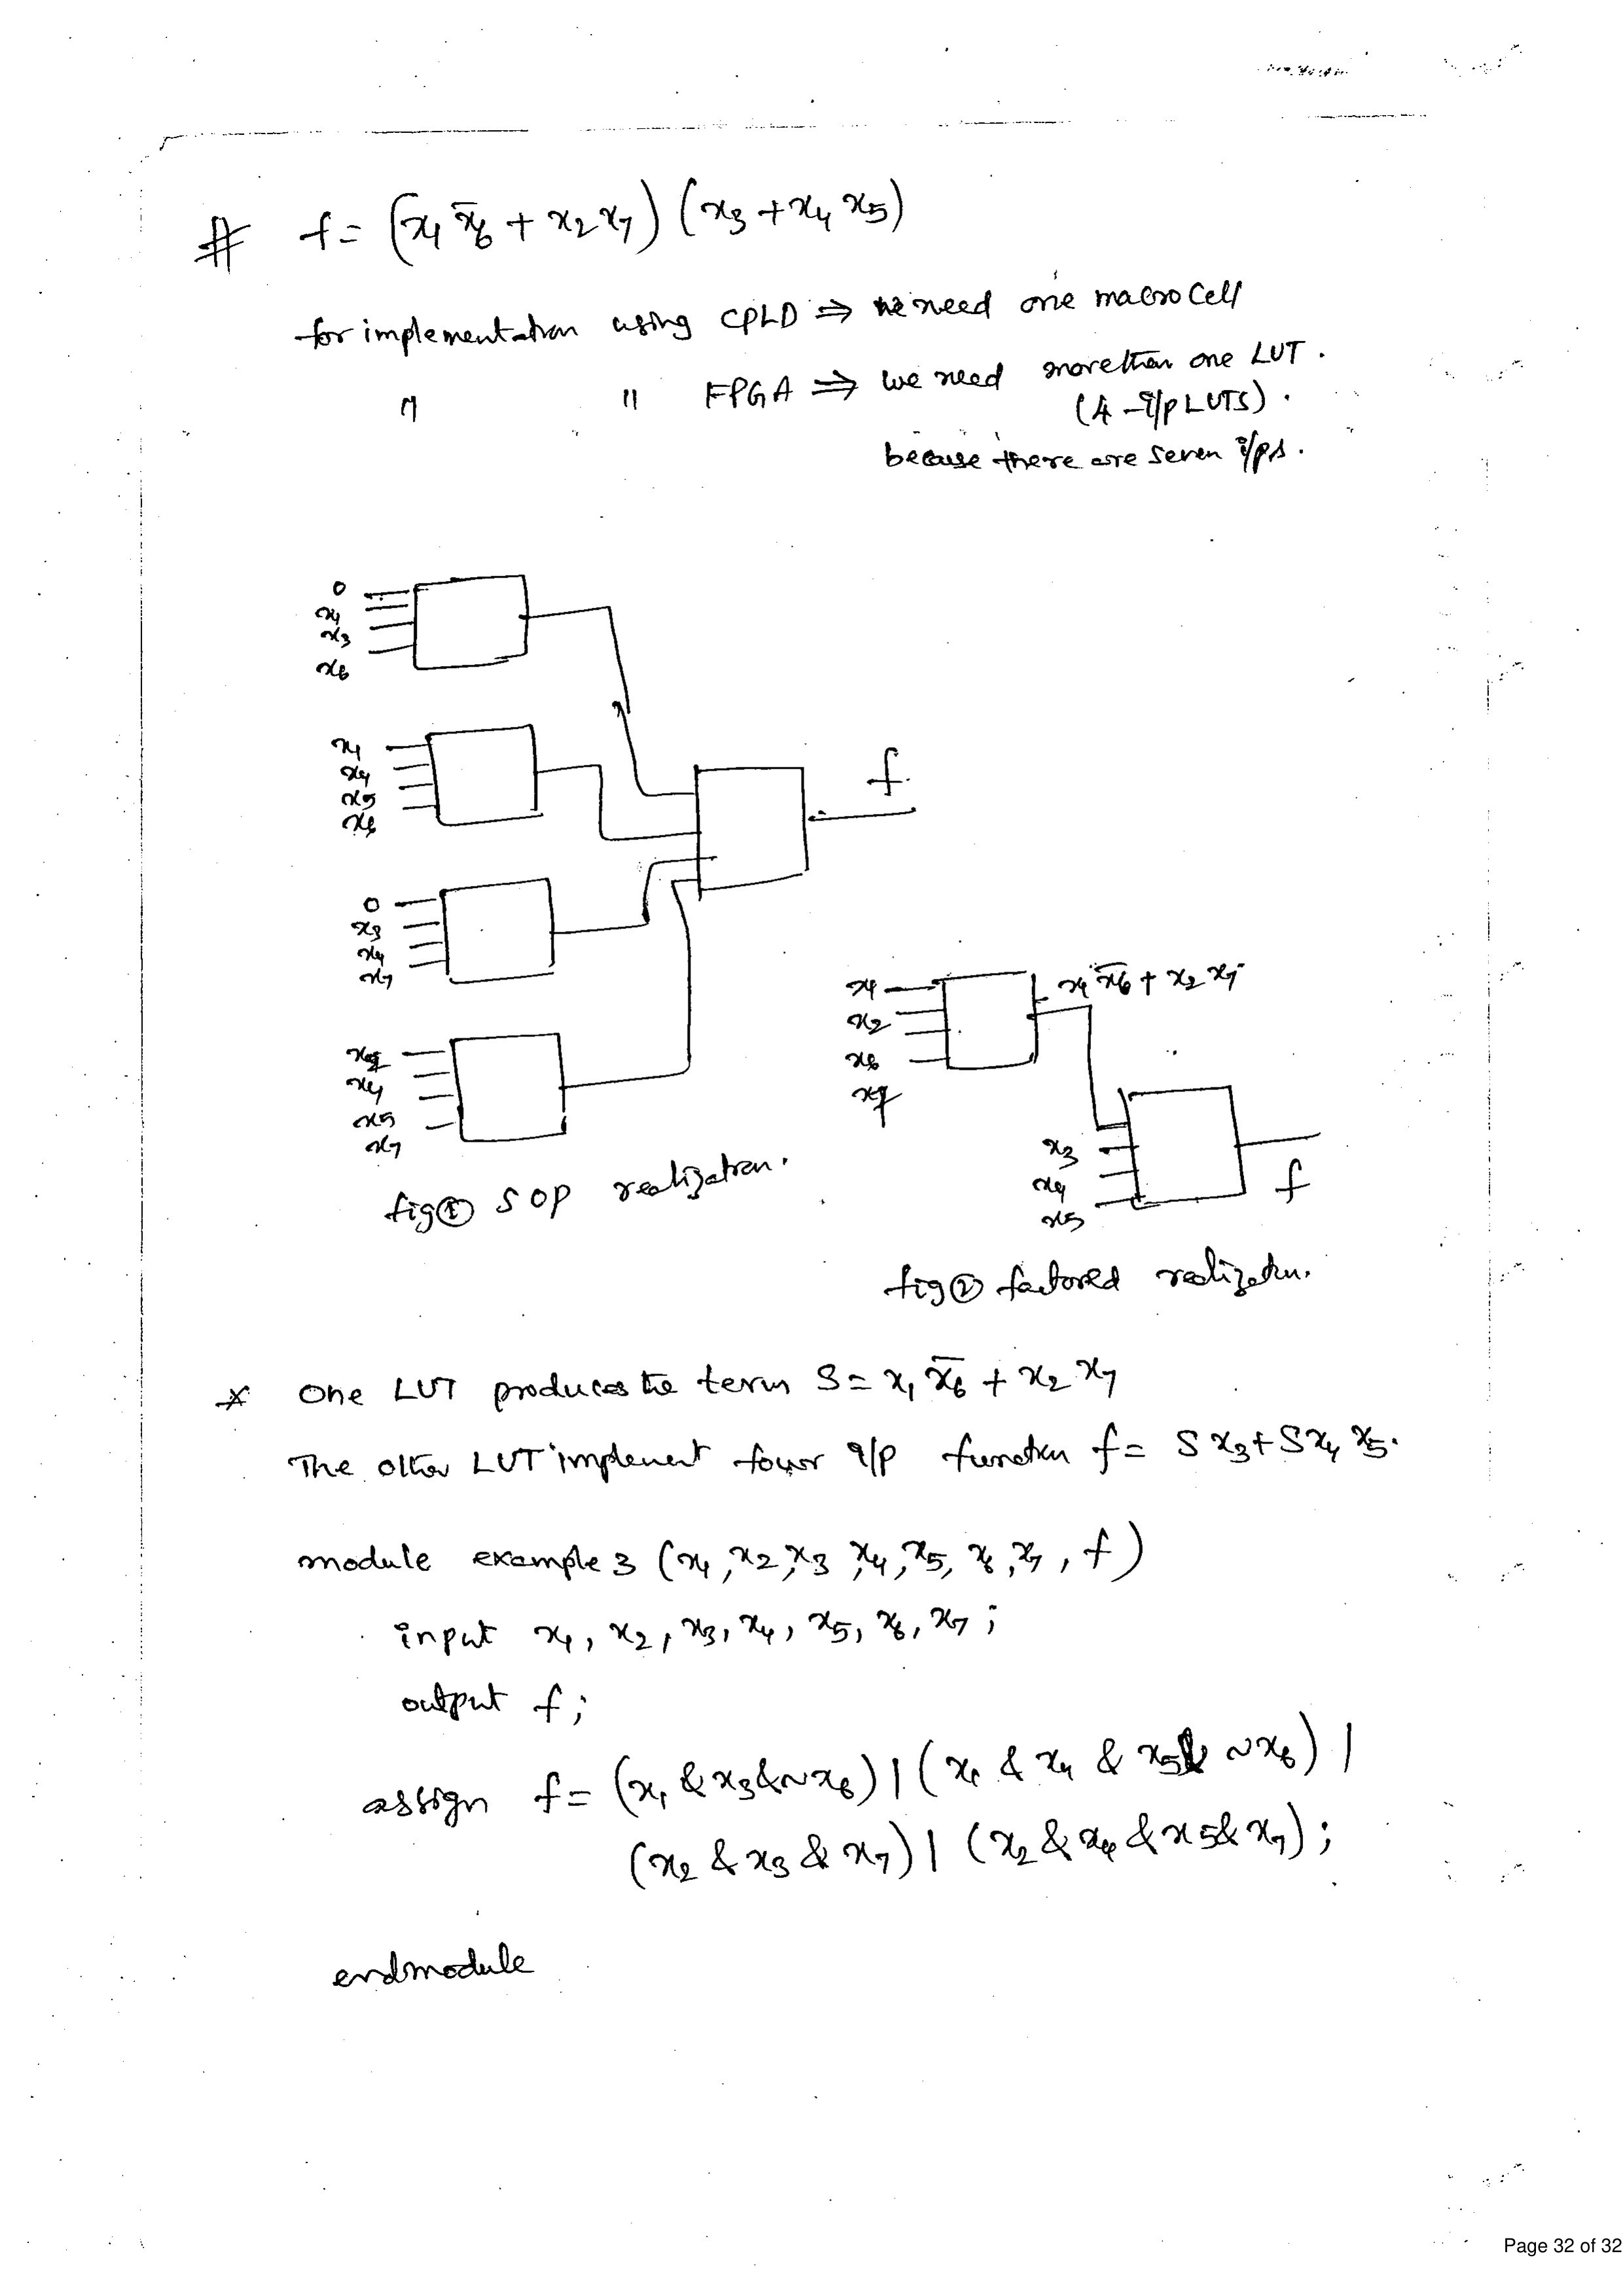 # f = (x1 x̄6 + x2 x7) (x3 + x4 x5)
for implementation using CPLD ⇒ we need one macro cell
" " FPGA ⇒ we need more than one LUT.
(4-i/p LUTS).
because there are seven i/ps.
0
x1
x3
x6
x1
x4
x5
x6
f
0
x3
x4
x7
x4
x5
x7
fig ① SOP realization.
x1
x2
x6
x7
x1 x̄6 + x2 x7
x3
x4
x5
f
fig ② factored realization.
* One LUT produces the term S = x1 x̄6 + x2 x7
The other LUT implement four i/p function f = S x3 + S x4 x5.
module example 3 (x1, x2, x3, x4, x5, x6, x7, f)
input x1, x2, x3, x4, x5, x6, x7;
output f;
assign f = (x1 & x3 & ~x6) | (x1 & x4 & x5 & ~x6) |
(x2 & x3 & x7) | (x2 & x4 & x5 & x7);
endmodule
Page 32 of 32